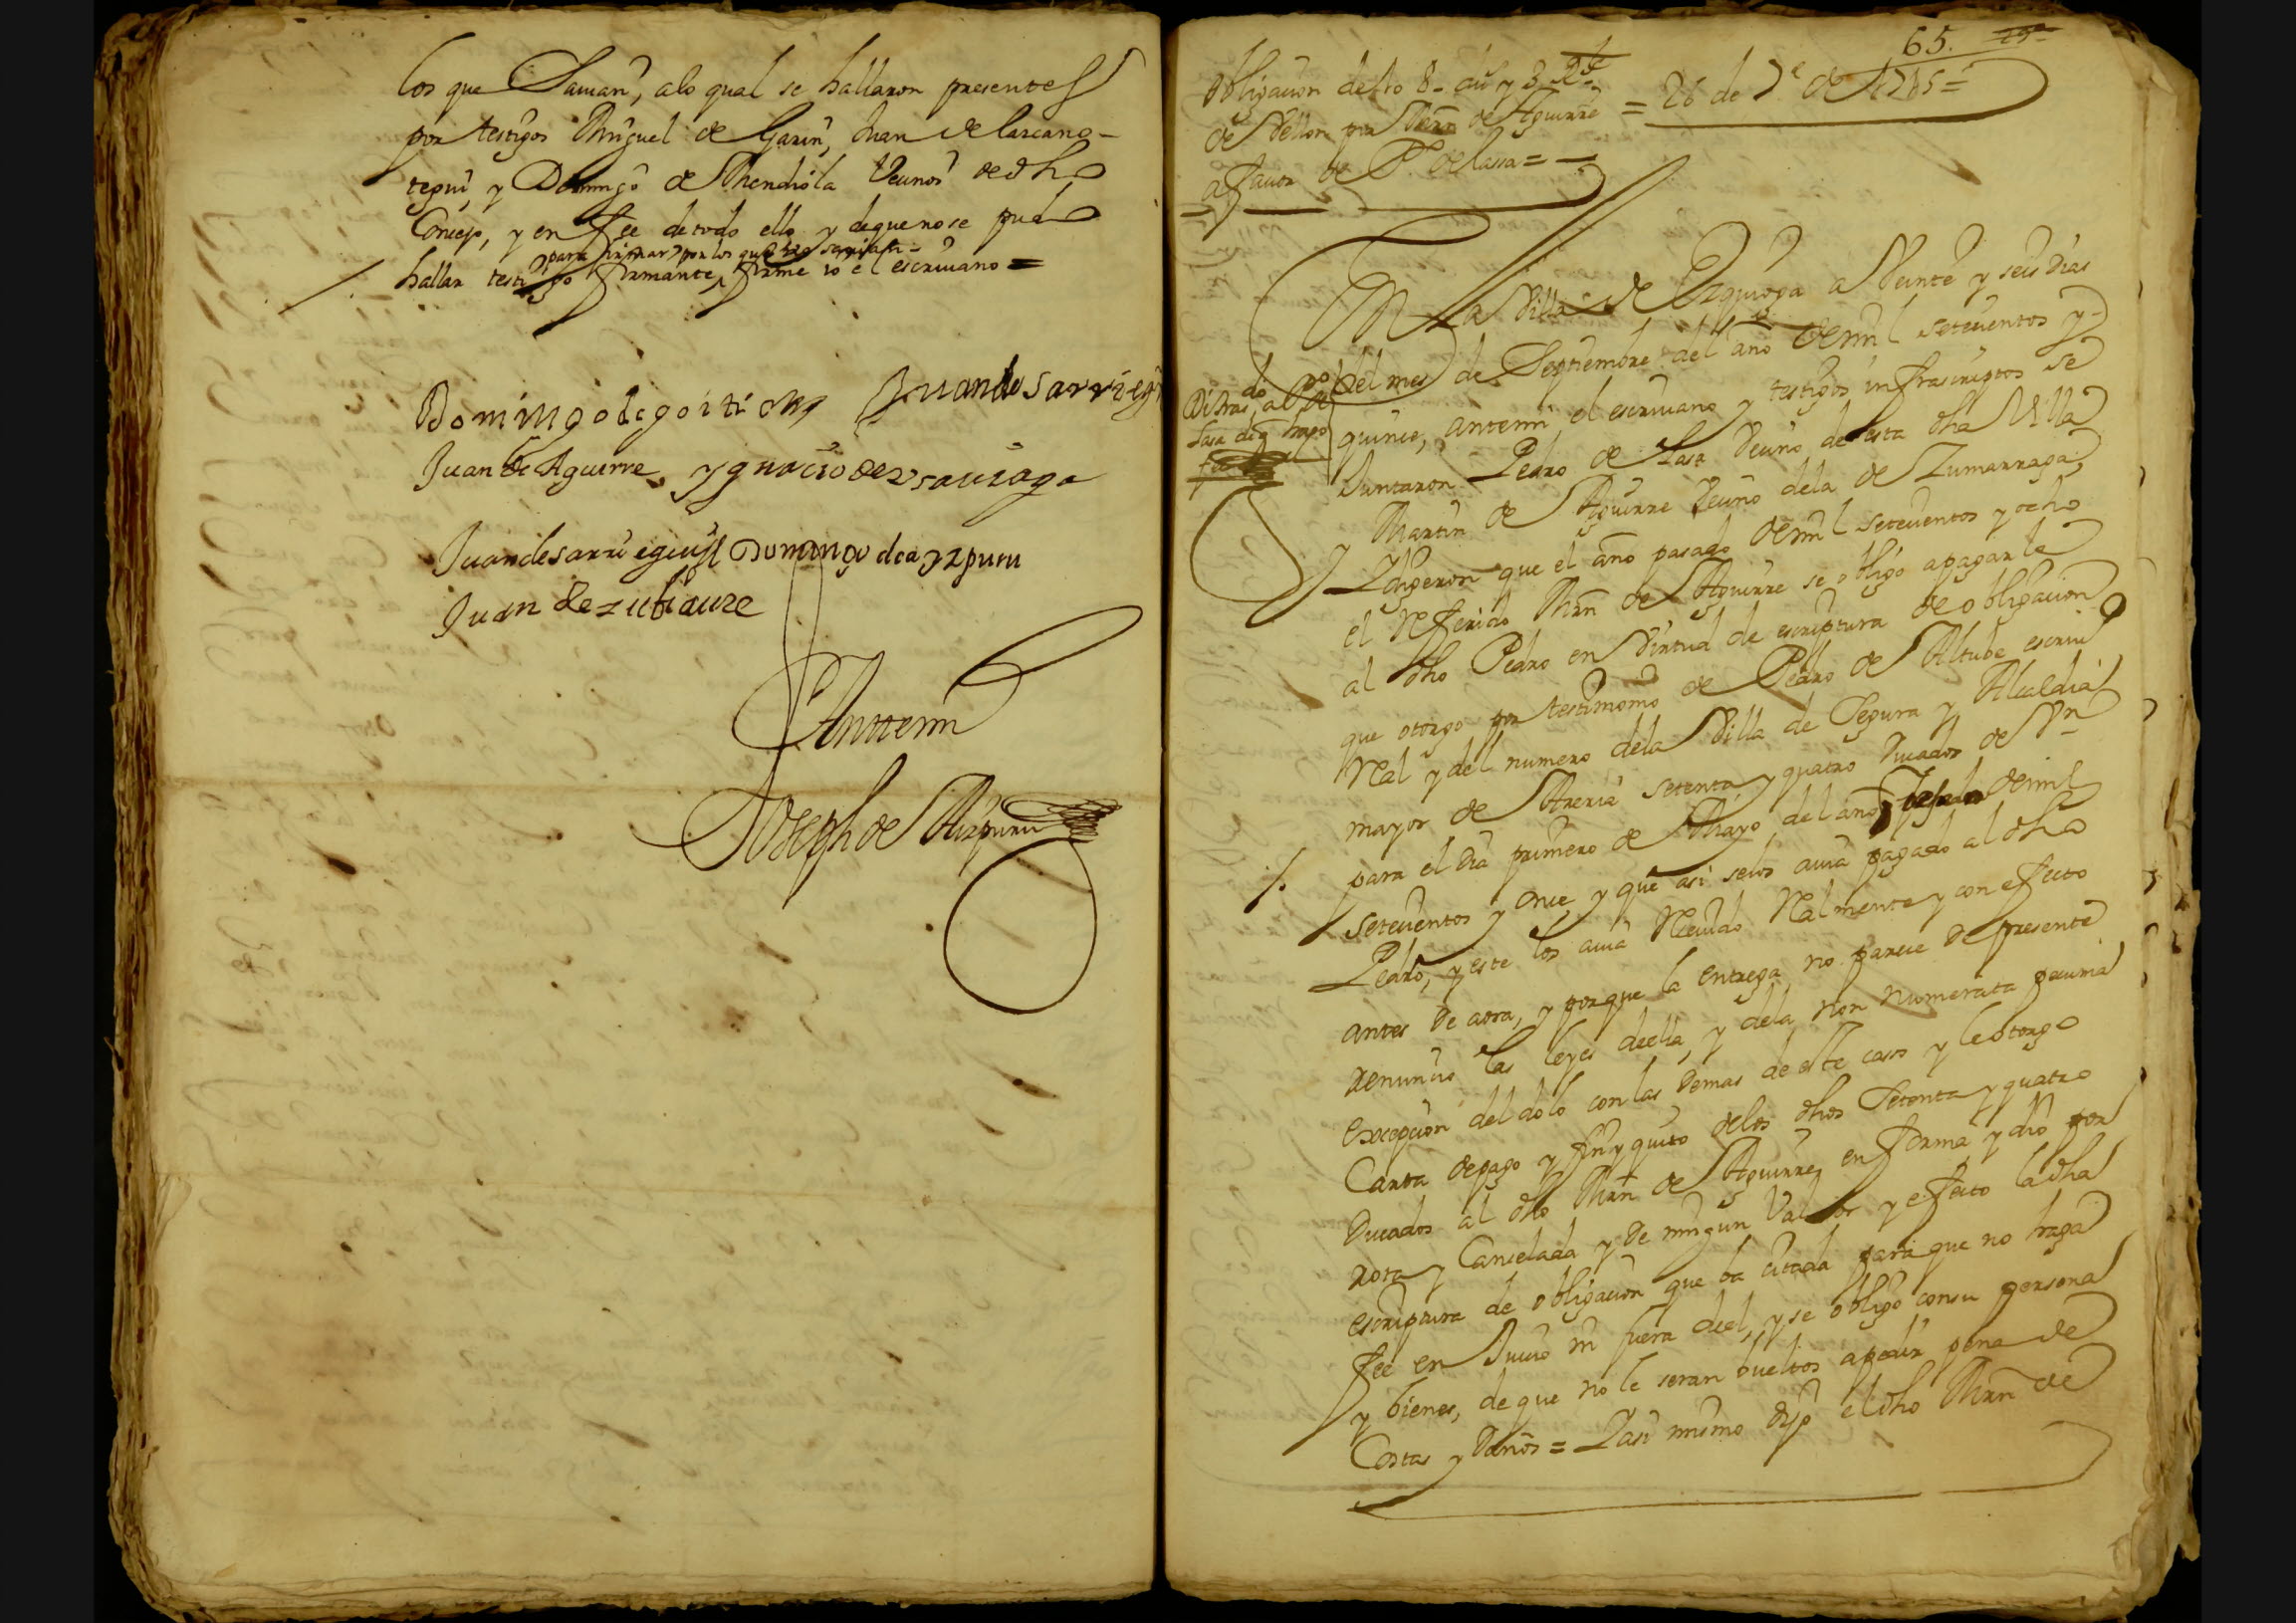 los que Savian, alo qual se hallaron presentes
por testigos Miguel de Garin, Juan de larcano-
tegui, y Domingo de Mendiola Vecinos de dho
Concejo, y en fee de todo ello y de que no se pudo
para firmar por los que no savian
hallar testigo firmante, firme io el escrivano =
Domingo de goiti Juan de sarriegui
Juan de Aguirre ygnacio de
Juan de sarriegui Domingo de ayzpuru
Juan de zubiaurre
Antemi
Joseph de Aizpuru
65.
obligacion de 108 du.s y 3 R.s
de Vellon por Mrn de Aguirre = 26 de 7.e de 1715 =
a favor de P.o de lassa =
En la Villa de Ezquioga a Veinte y seis dias
del mes de Septiembre del año de mil setecientos y
quince, antemi el escrivano y testigos infrascriptos se
Juntaron Pedro de Lasa Vecino de esta dha Villa
y Martin de Aguirre Vecino dela de Zumarraga,
Y dixeron que el año pasado de mil setecientos y ocho
el referido Mrn de Aguirre se obligo a pagar le
al dho Pedro en Virtud de escriptura de obligacion
que otorgo por testimonio de Pedro de Altube escriv.o
Real y del numero dela Villa de Segura y Alcaldia
mayor de Areria setenta y quatro Ducados de V.n
para el dia primero de Mayo del año de mil
setecientos y once, y que asi selos avia pagado al dho
Pedro, y este los avia Recivido Realmente y con efecto
antes de aora, y porque la entrega no parece de presente
renuncio las leyes deella, y dela non numerata pecunia
excepcion del dolo con las demas de este caso y le otorgo
Carta de pago y finyquito delos dhos Setenta y quatro
Ducados al dho Mrn de Aguirre, en forma, y dio por
rota y Cancelada y de ningun Valor y efecto la dha
escriptura de obligacion que ba citada para que no haga
fee en Juicio ni fuera deel, y se obligo con su persona
y bienes, de que no le seran bueltos a pedir pena de
Costas y Daños = Y asi mismo dijo el dho Mrn de